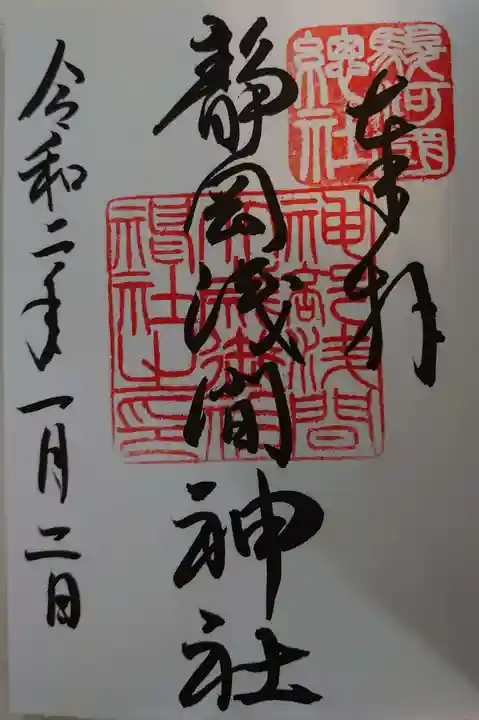 奉拝
駿河國
總社
静岡浅間神社
神部浅間
大歳御祖
神社之印
令和二年一月二日